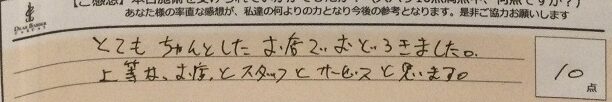 あなた様の率直な感想が、私達の何よりの力となり今後の参考となります。是非ご協力お願いします
とても ちゃんとした お店でおどろきました。
上等な、お店、とスタッフと サービスと思います。
10点